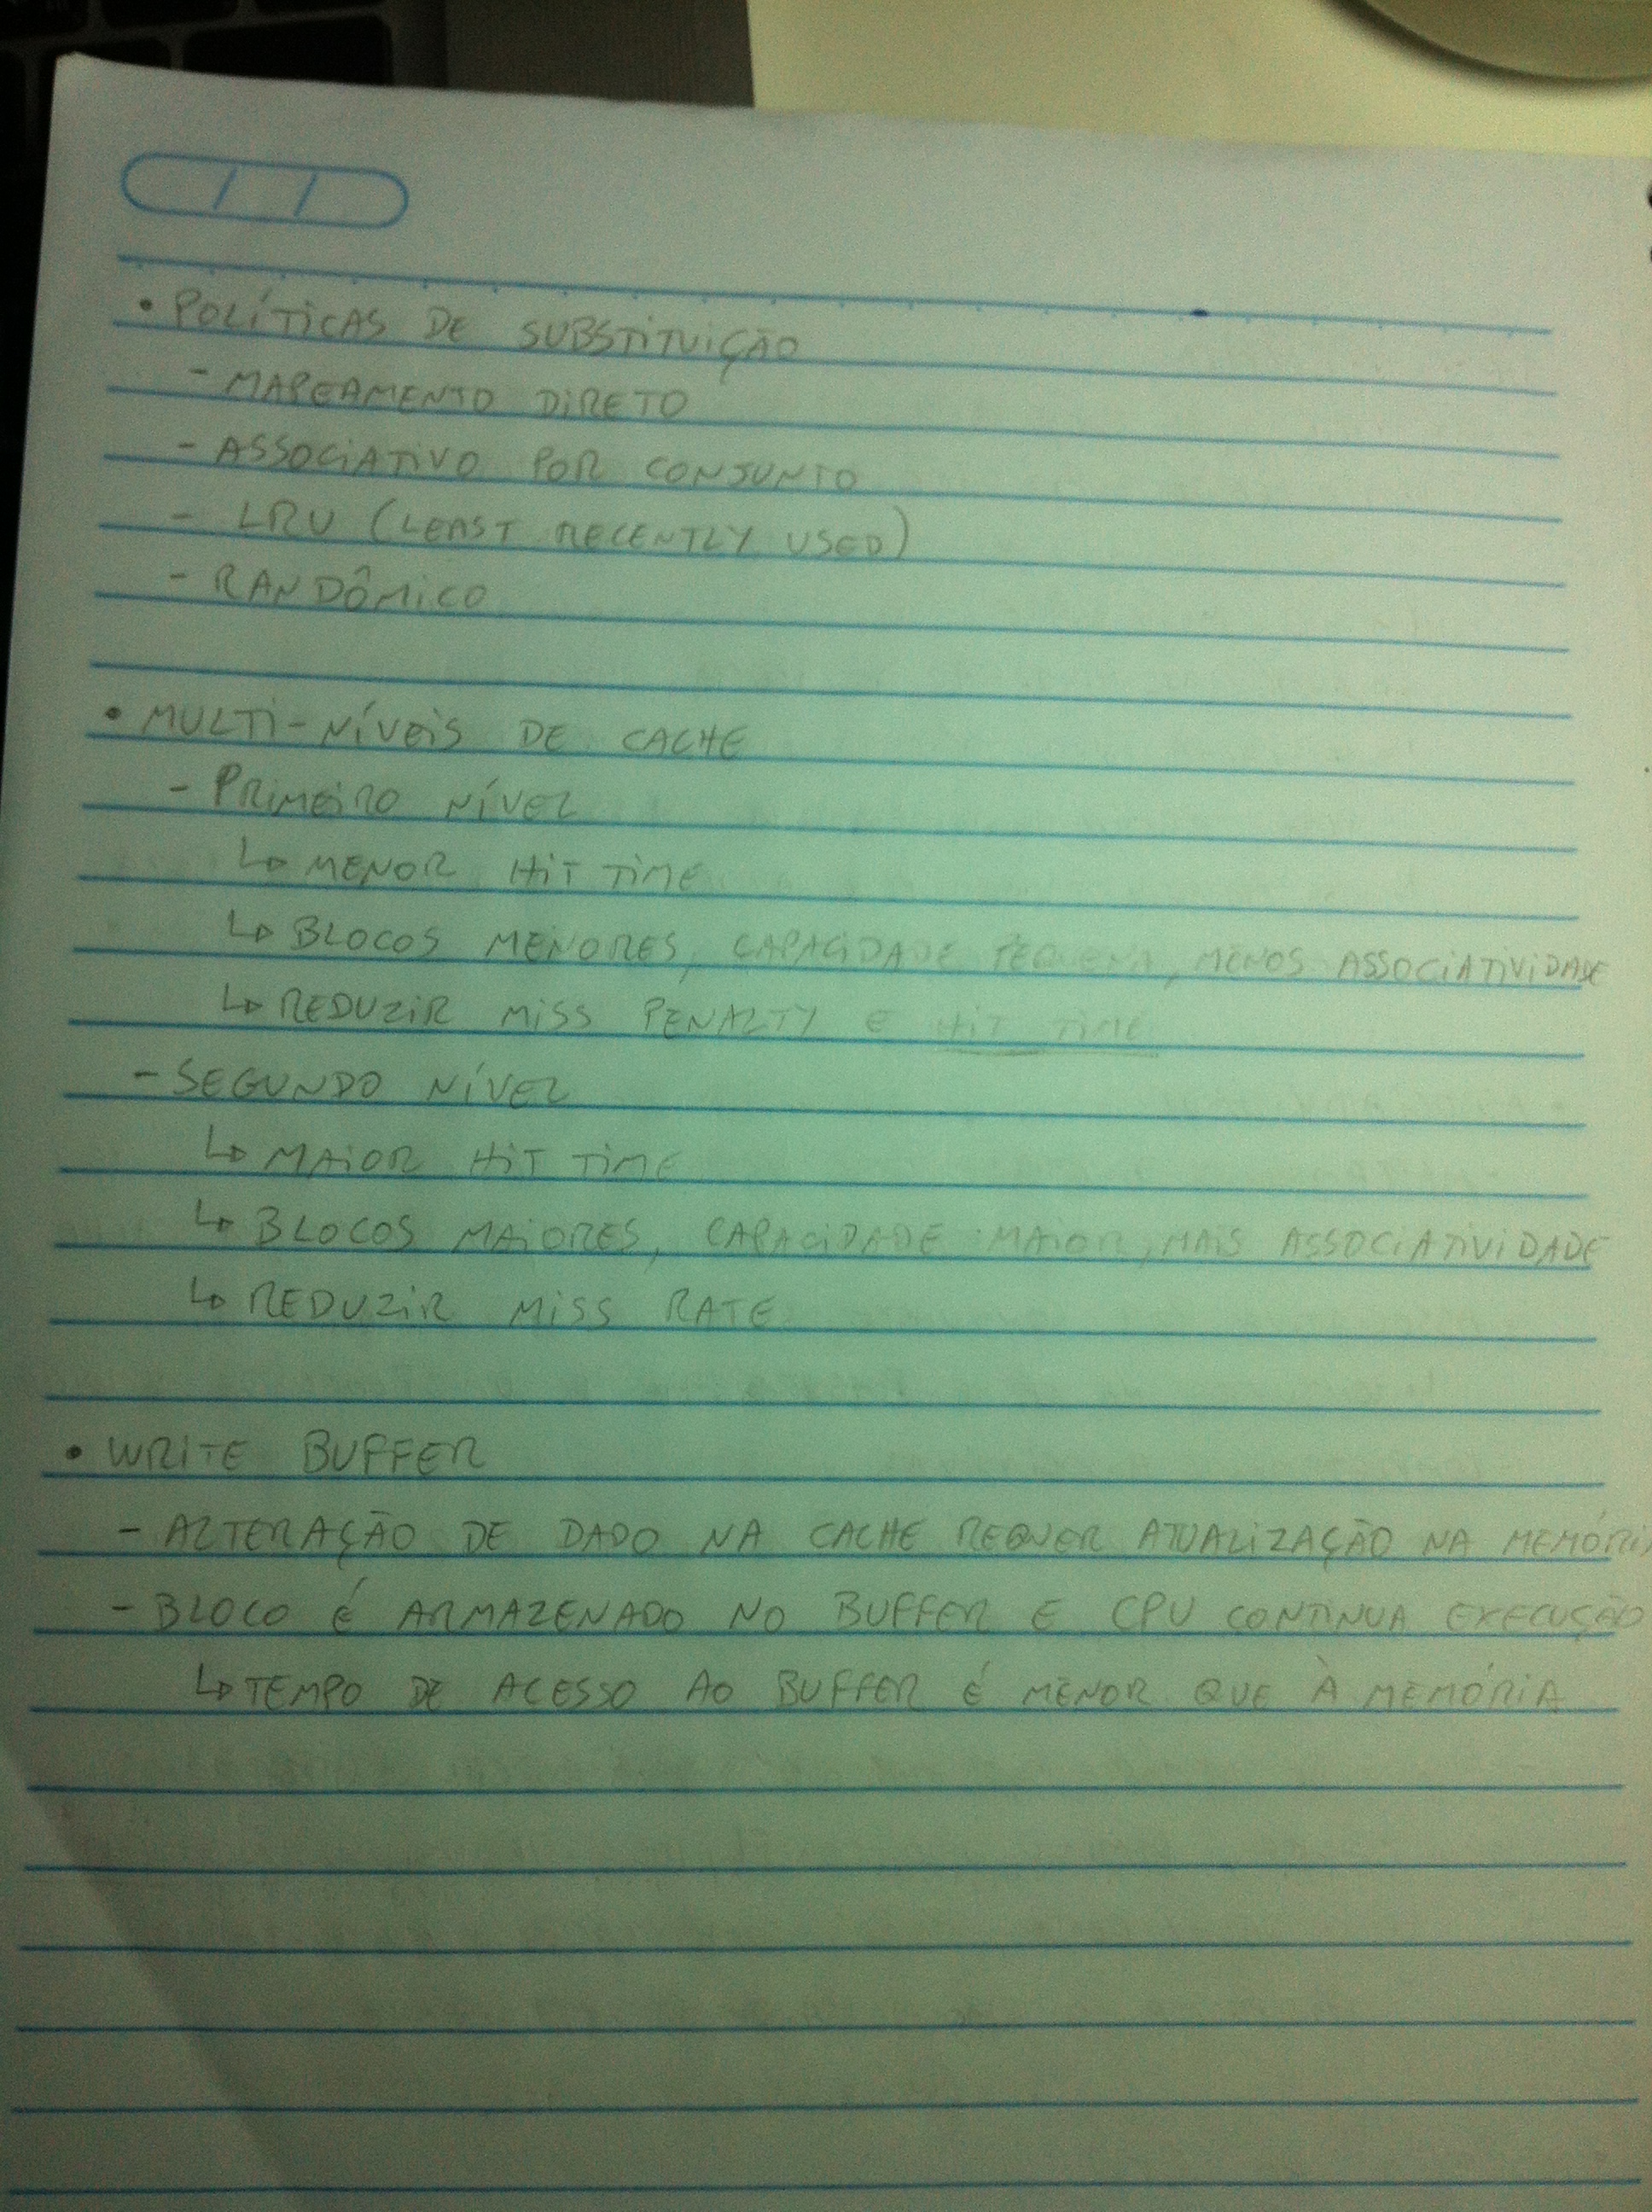 • POLÍTICAS DE SUBSTITUIÇÃO
- MAPEAMENTO DIRETO
- ASSOCIATIVO POR CONJUNTO
- LRU (LEAST RECENTLY USED)
- RANDÔMICO
• MULTI-NÍVEIS DE CACHE
- PRIMEIRO NÍVEL
↳ MENOR HIT TIME
↳ BLOCOS MENORES, CAPACIDADE PEQUENA, MENOS ASSOCIATIVIDADE
↳ REDUZIR MISS PENALTY E HIT TIME
- SEGUNDO NÍVEL
↳ MAIOR HIT TIME
↳ BLOCOS MAIORES, CAPACIDADE MAIOR, MAIS ASSOCIATIVIDADE
↳ REDUZIR MISS RATE
• WRITE BUFFER
- ALTERAÇÃO DE DADO NA CACHE REQUER ATUALIZAÇÃO NA MEMÓRIA
- BLOCO É ARMAZENADO NO BUFFER E CPU CONTINUA EXECUÇÃO
↳ TEMPO DE ACESSO AO BUFFER É MENOR QUE À MEMÓRIA